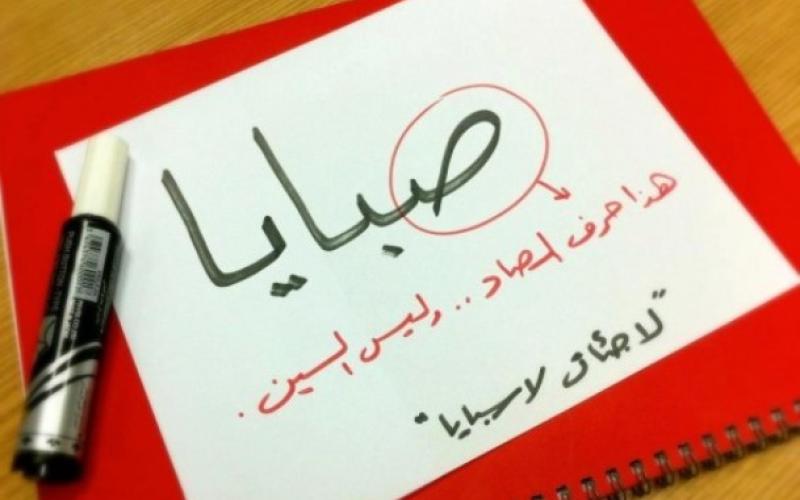 صبايا
هذا حرف الصاد .. وليس السين .
"لاجئات لا سبايا"